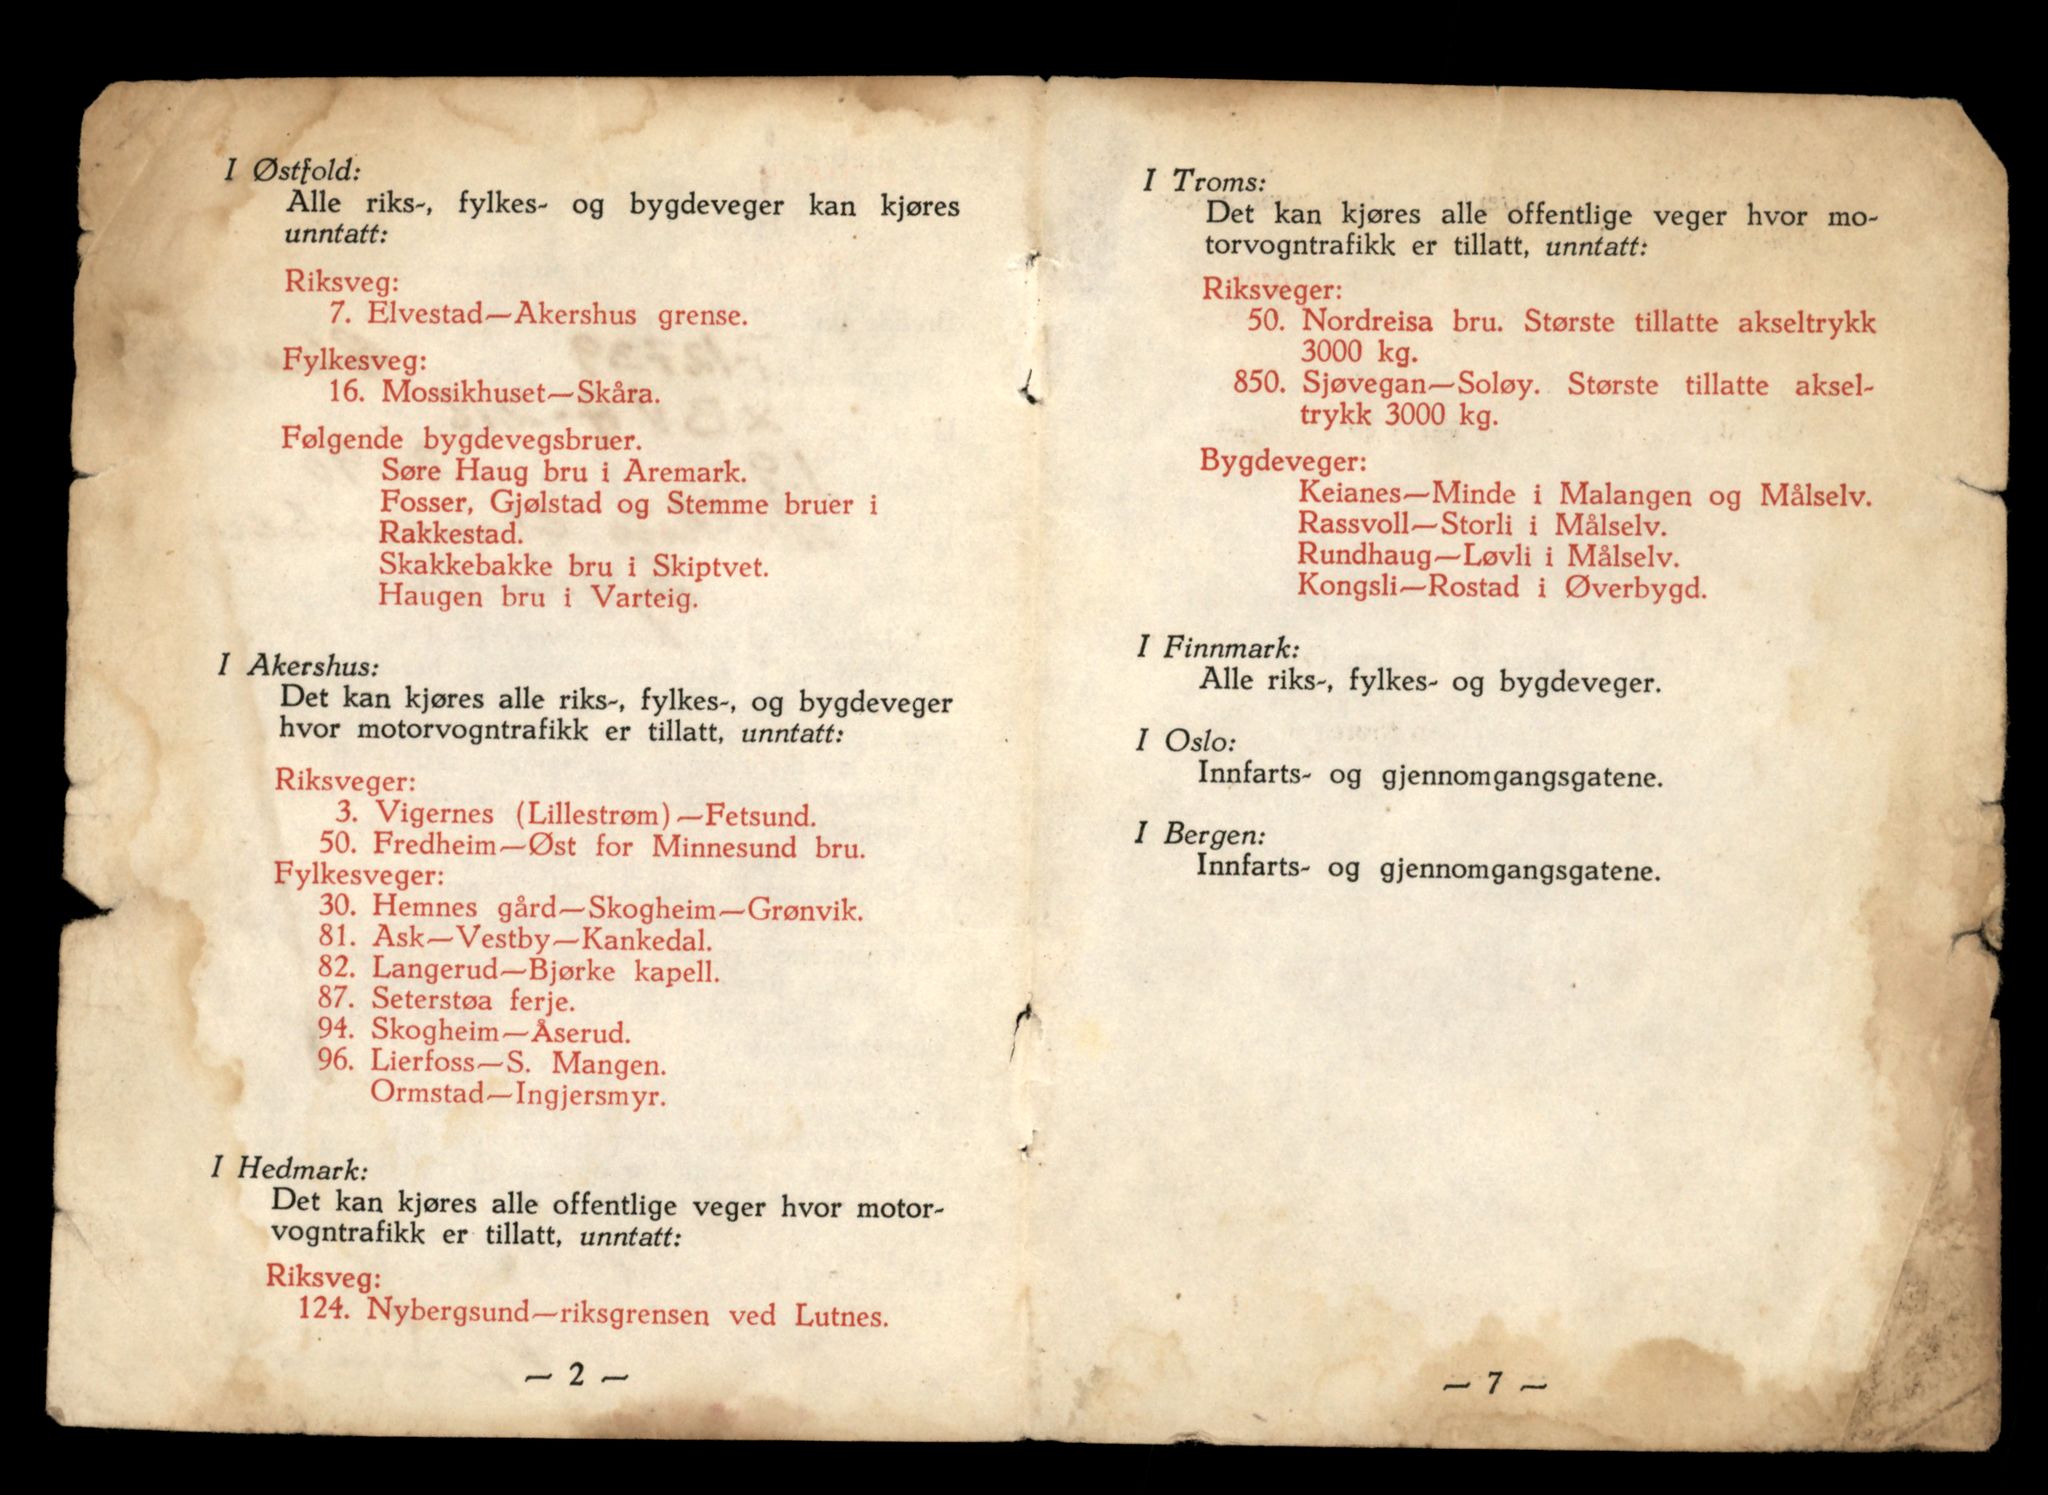 I Østfold:
Alle riks-, fylkes- og bygdeveger kan kjøres
unntatt:
Riksveg:
7. Elvestad—Akershus grense.
Fylkesveg:
16. Mossikhuset—Skåra.
Følgende bygdevegsbruer.
Søre Haug bru i Aremark.
Fosser, Gjølstad og Stemme bruer i
Rakkestad.
Skakkebakke bru i Skiptvet.
Haugen bru i Varteig.
I Akershus:
Det kan kjøres alle riks-, fylkes-, og bygdeveger
hvor motorvogntrafikk er tillatt, unntatt:
Riksveger:
3. Vigernes (Lillestrøm)—Fetsund.
50. Fredheim—Øst for Minnesund bru.
Fylkesveger:
30. Hemnes gård—Skogheim—Grønvik.
81. Ask—Vestby—Kankedal.
82. Langerud—Bjørke kapell.
87. Seterstøa ferje.
94. Skogheim—Åserud.
96. Lierfoss—S. Mangen.
Ormstad—Ingjersmyr.
I Hedmark:
Det kan kjøres alle offentlige veger hvor motor-
vogntrafikk er tillatt, unntatt:
Riksveg:
124. Nybergsund—riksgrensen ved Lutnes.
— 2 —
I Troms:
Det kan kjøres alle offentlige veger hvor mo-
torvogntrafikk er tillatt, unntatt:
Riksveger:
50. Nordreisa bru. Største tillatte akseltrykk
3000 kg.
850. Sjøvegan—Soløy. Største tillatte aksel-
trykk 3000 kg.
Bygdeveger:
Keianes—Minde i Malangen og Målselv.
Rassvoll—Storli i Målselv.
Rundhaug—Løvli i Målselv.
Kongsli—Rostad i Øverbygd.
I Finnmark:
Alle riks-, fylkes- og bygdeveger.
I Oslo:
Innfarts- og gjennomgangsgatene.
I Bergen:
Innfarts- og gjennomgangsgatene.
— 7 —